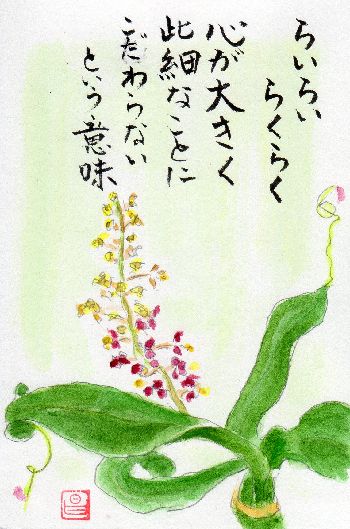 らいらい
らくらく
心が大きく
此細なことに
こだわらない
という意味